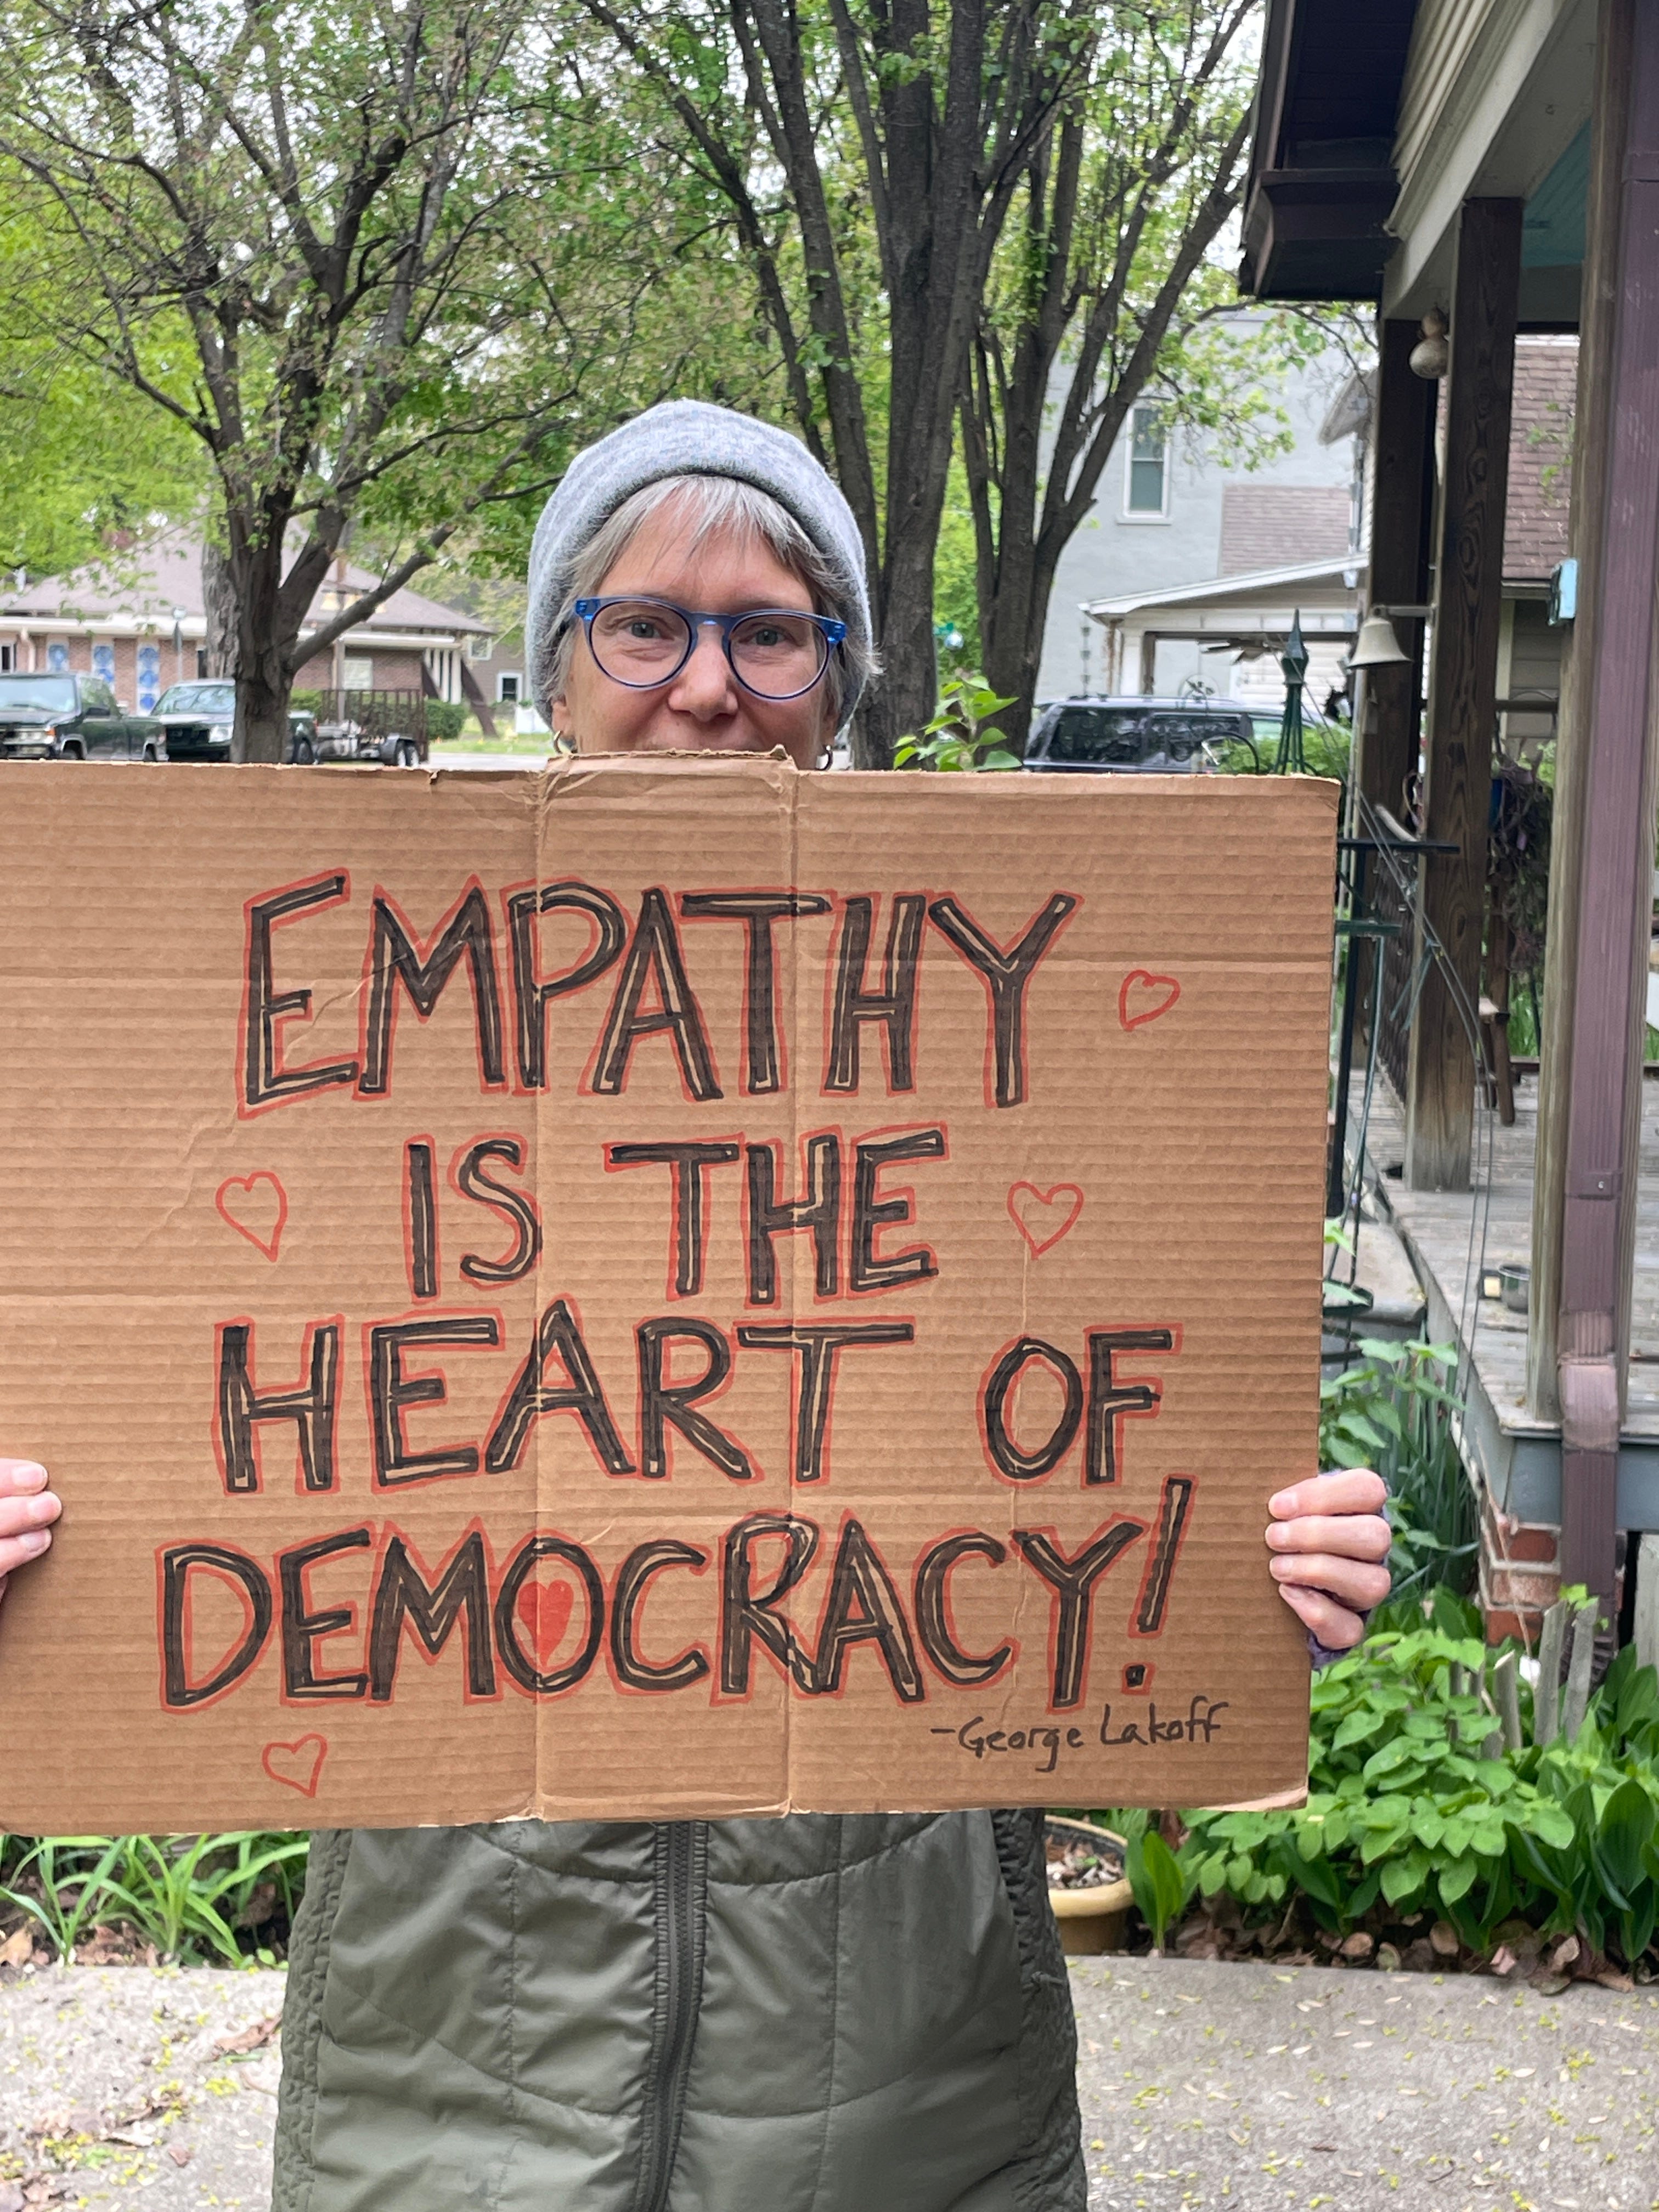 EMPATHY
IS THE
HEART OF
DEMOCRACY!
-George Lakoff